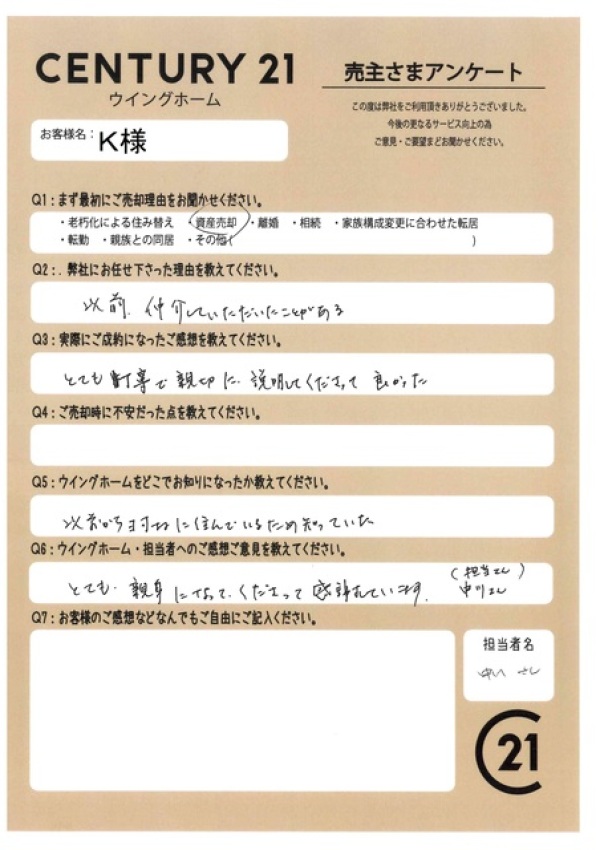 CENTURY 21
ウイングホーム
売主さまアンケート
この度は弊社をご利用頂きありがとうございました。
今後の更なるサービス向上の為
ご意見・ご要望まどお聞かせください。
お客様名：K様
Q1：まず最初にご売却理由をお聞かせください。
・老朽化による住み替え ・資産売却 ・離婚 ・相続 ・家族構成変更に合わせた転居
・転勤 ・親族との同居 ・その他( )
Q2：. 弊社にお任せ下さった理由を教えてください。
以前、仲介していただいたことがある
Q3：実際にご成約になったご感想を教えてください。
とても 丁寧で親切に 説明してくださって 良かった
Q4：ご売却時に不安だった点を教えてください。
Q5：ウイングホームをどこでお知りになったか教えてください。
以前から に住んでいるため知っていた
Q6：ウイングホーム・担当者へのご感想ご意見を教えてください。
とても、親身になって、くださって 感謝しています。
(担当さん)
中川さん
Q7：お客様のご感想などなんでもご自由にご記入ください。
担当者名
中川 さん
C21